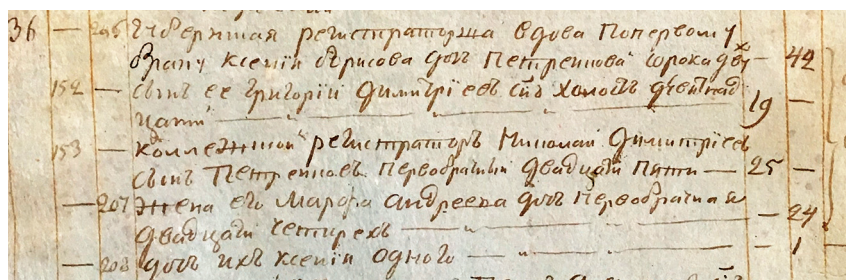 36 — 206 Губерншая регистраторша вдова Попервому
браку Ксенїи бѣрисова дочь Петренкова сорока двух — 42
152 — сынъ ее григорїи Димитрїевъ сн҃ъ холостъ девятнад
цати — 19 —
153 — коллежшои регистраторъ Николаи Димитрїев
сынъ Петренковъ первобрачныи двадцати пяти — 25 —
— 207 жена его Марфа андреева дочь первобрачная
двадцати четирехъ — 24
— 208 дочь ихъ ксенїи одного — 1